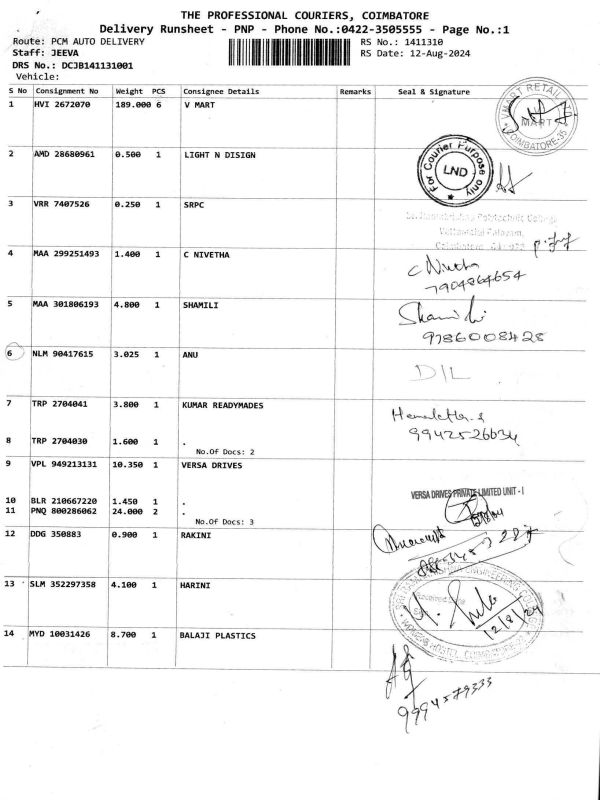 THE PROFESSIONAL COURIERS, COIMBATORE
Delivery Runsheet - PNP - Phone No.:0422-3505555 - Page No.:1
Route: PCM AUTO DELIVERY RS No.: 1411310
Staff: JEEVA RS Date: 12-Aug-2024
DRS No.: DCJB141131001
Vehicle:
S No Consignment No Weight PCS Consignee Details Remarks Seal & Signature
1 HVI 2672070 189.000 6 V MART
VMART RETAIL
MART
COIMBATORE-35
2 AMD 28680961 0.500 1 LIGHT N DISIGN
For Courier Purpose only
LND
3 VRR 7407526 0.250 1 SRPC
Polytechnic College
4 MAA 299251493 1.400 1 C NIVETHA
C Nivetha
7904864654
5 MAA 301806193 4.800 1 SHAMILI
Shamili
9786008428
6 NLM 90417615 3.025 1 ANU
D/L
7 TRP 2704041 3.800 1 KUMAR READYMADES
9942526634
8 TRP 2704030 1.600 1 .
No.Of Docs: 2
9 VPL 949213131 10.350 1 VERSA DRIVES
VERSA DRIVES PRIVATE LIMITED UNIT - I
10 BLR 210667220 1.450 1 .
11 PNQ 800286062 24.000 2 .
No.Of Docs: 3
12 DDG 350883 0.900 1 RAKINI
13 SLM 352297358 4.100 1 HARINI
ENGINEERING COLLEGE
12/8/24
HOSTEL
14 MYD 10031426 8.700 1 BALAJI PLASTICS
9994579333